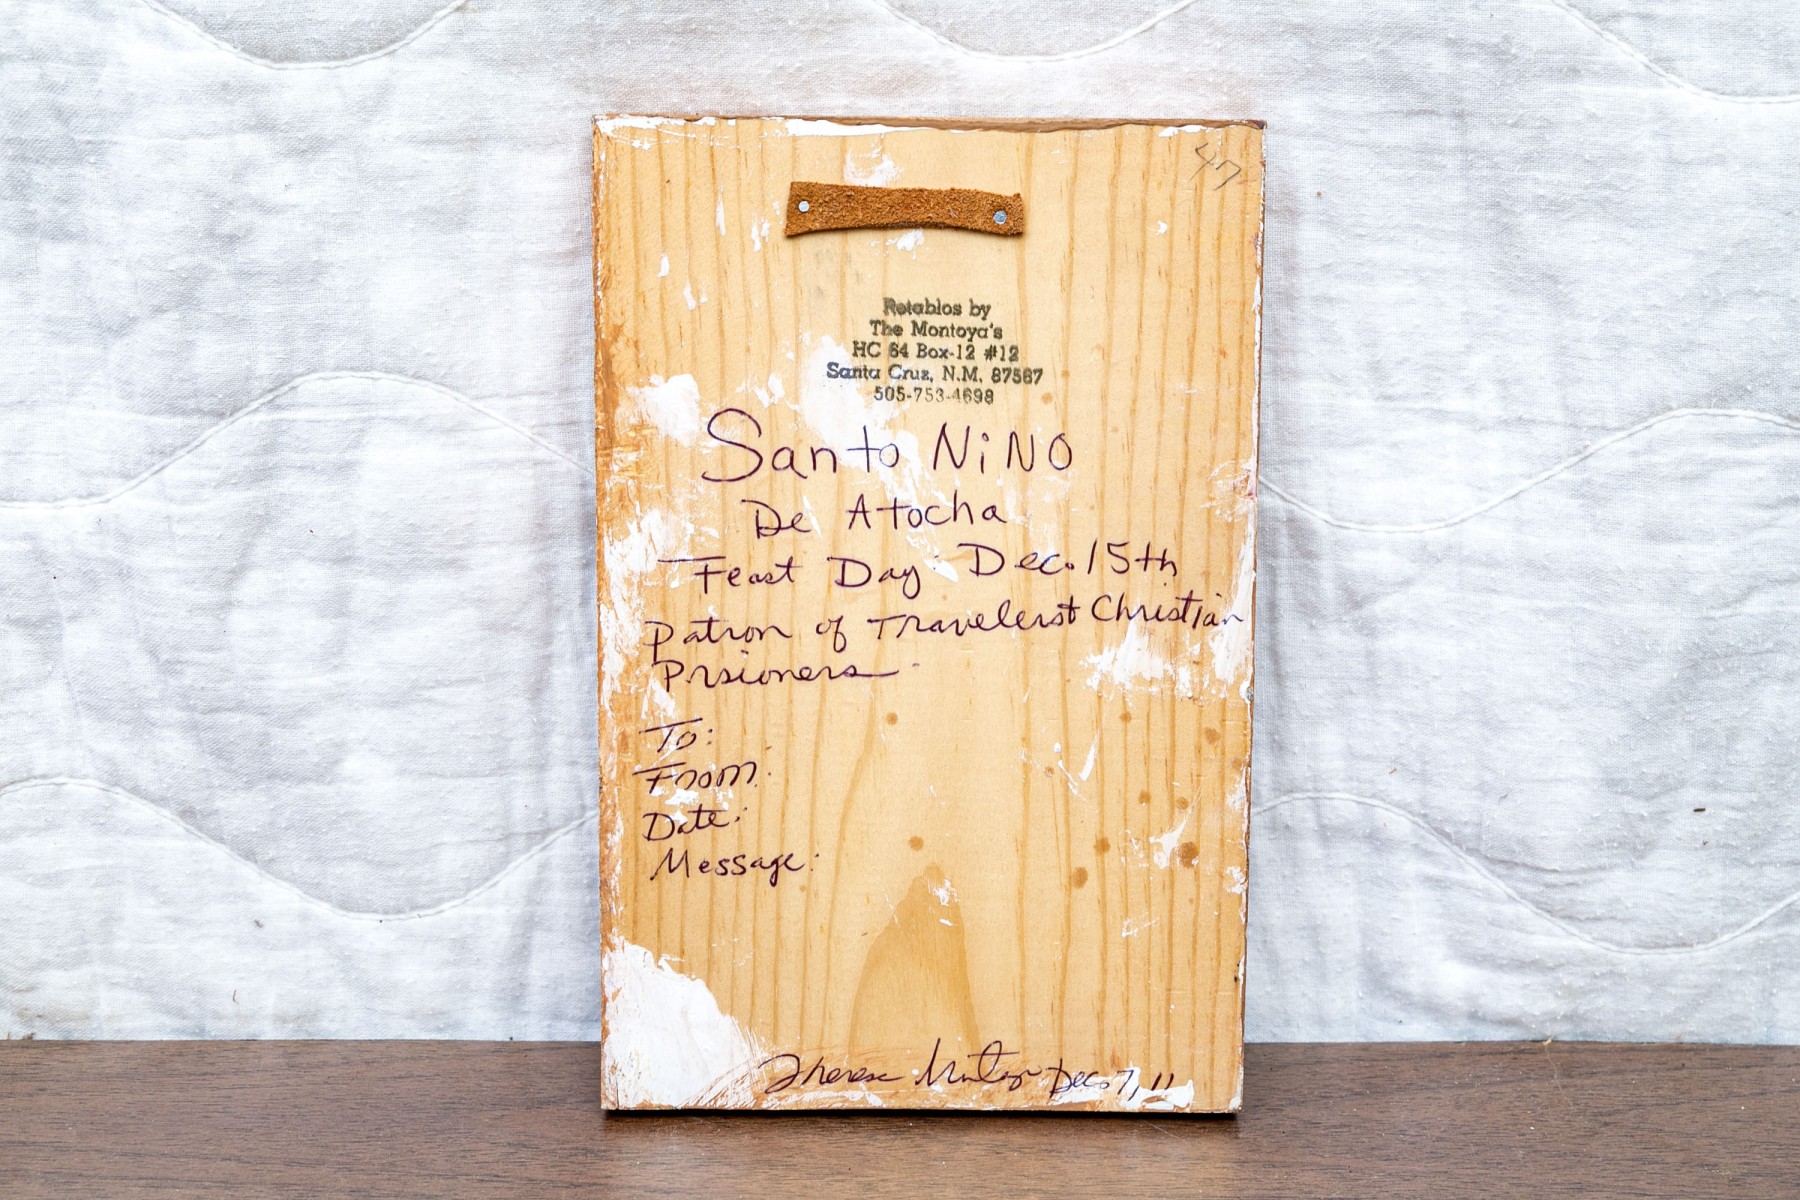 47
Retablos by
The Montoya's
HC 64 Box-12 #12
Santa Cruz, N.M. 87567
505-753-4698
Santo NiNO
De Atocha
Feast Day: Dec. 15th
Patron of Travelerst Christian
Prsioners
To:
From:
Date:
Message:
Therese Montoya Dec. 7, 11